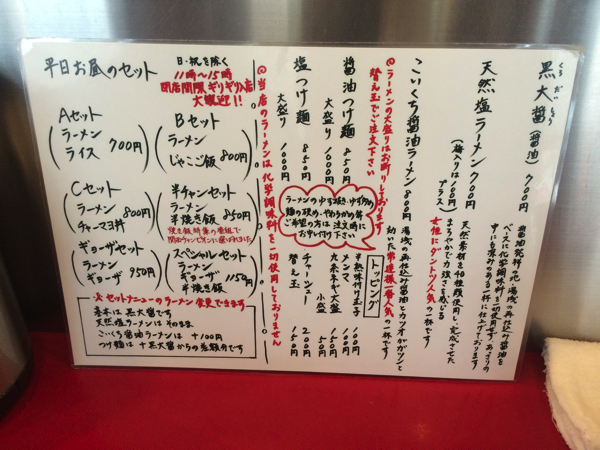 黒大醤(醤油) 700円
くろだいしょう
天然塩ラーメン 700円
(梅入りは100円プラス)
天然素材を40種類使用し、完成させた
まろやかで力強さを感じる
女性にダントツ人気の一杯です
こいくち醤油ラーメン 800円
湯浅の再仕込み醤油とカツオがガツンと
効いた常連様一番人気の一杯です
@ラーメンの大盛りはお断りしております
替え玉でご注文下さい
醤油つけ麺 850円
大盛り 1000円
塩つけ麺 850円
大盛り 1000円
ラーメンのゆず抜き・ゆず多め
麺の硬め・やわらかめ等
ご希望の方は注文時に
お申し付け下さい
トッピング
半熟味付玉子 100円
メンマ 100円
九条ネギ大盛 100円
小盛 50円
チャーシュー 200円
替え玉 150円
@当店のラーメンは化学調味料を一切使用しておりません
平日お昼のセット
日・祝を除く
11時〜15時
閉店間際ギリギリ入店
大歓迎!!
Aセット
ラーメン
ライス
700円
Bセット
ラーメン
じゃこご飯
800円
Cセット
ラーメン
チャーマヨ丼
800円
半チャンセット
ラーメン
半焼き飯
850円
ギョーザセット
ラーメン
ギョーザ
950円
スペシャルセット
ラーメン
ギョーザ
半焼き飯
1150円
★セットメニューのラーメン変更できます
基本は黒大醤です
天然塩ラーメンはそのまま
こいくち醤油ラーメンは+100円
つけ麺は+黒大醤からの差額分です